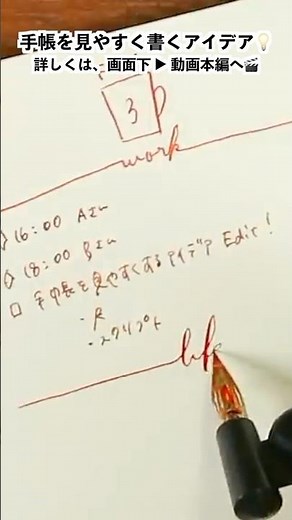 手帳を見やすく書くアイデア💡
詳しくは、画面下▶動画本編へ🎬
3
work
16:00 A
18:00 B
□ 手帳を見やすくするアイデア Edit!
life